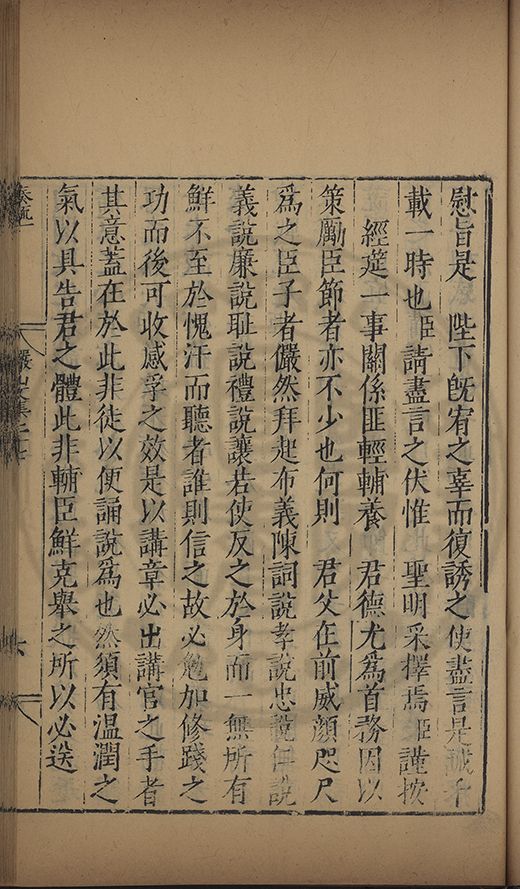 慰旨是 陛下旣宥之辜而復誘之使盡言是誠千
載一時也臣請盡言之伏惟 聖明采擇焉臣謹按
經筵一事關係匪輕輔養 君德尤爲首務因以
策勵臣節者亦不少也何則 君父在前威顔咫尺
爲之臣子者儼然拜起布義陳詞說孝說忠說 說
義說廉說耻說禮說讓若使反之於身而一無所有
鮮不至於愧汗而聽者誰則信之故必勉加修踐之
功而後可收感孚之效是以講章必出講官之手者
其意蓋在於此非徒以便誦說爲也然須有温潤之
氣以具告君之體此非輔臣鮮克舉之所以必送
儼山集
六